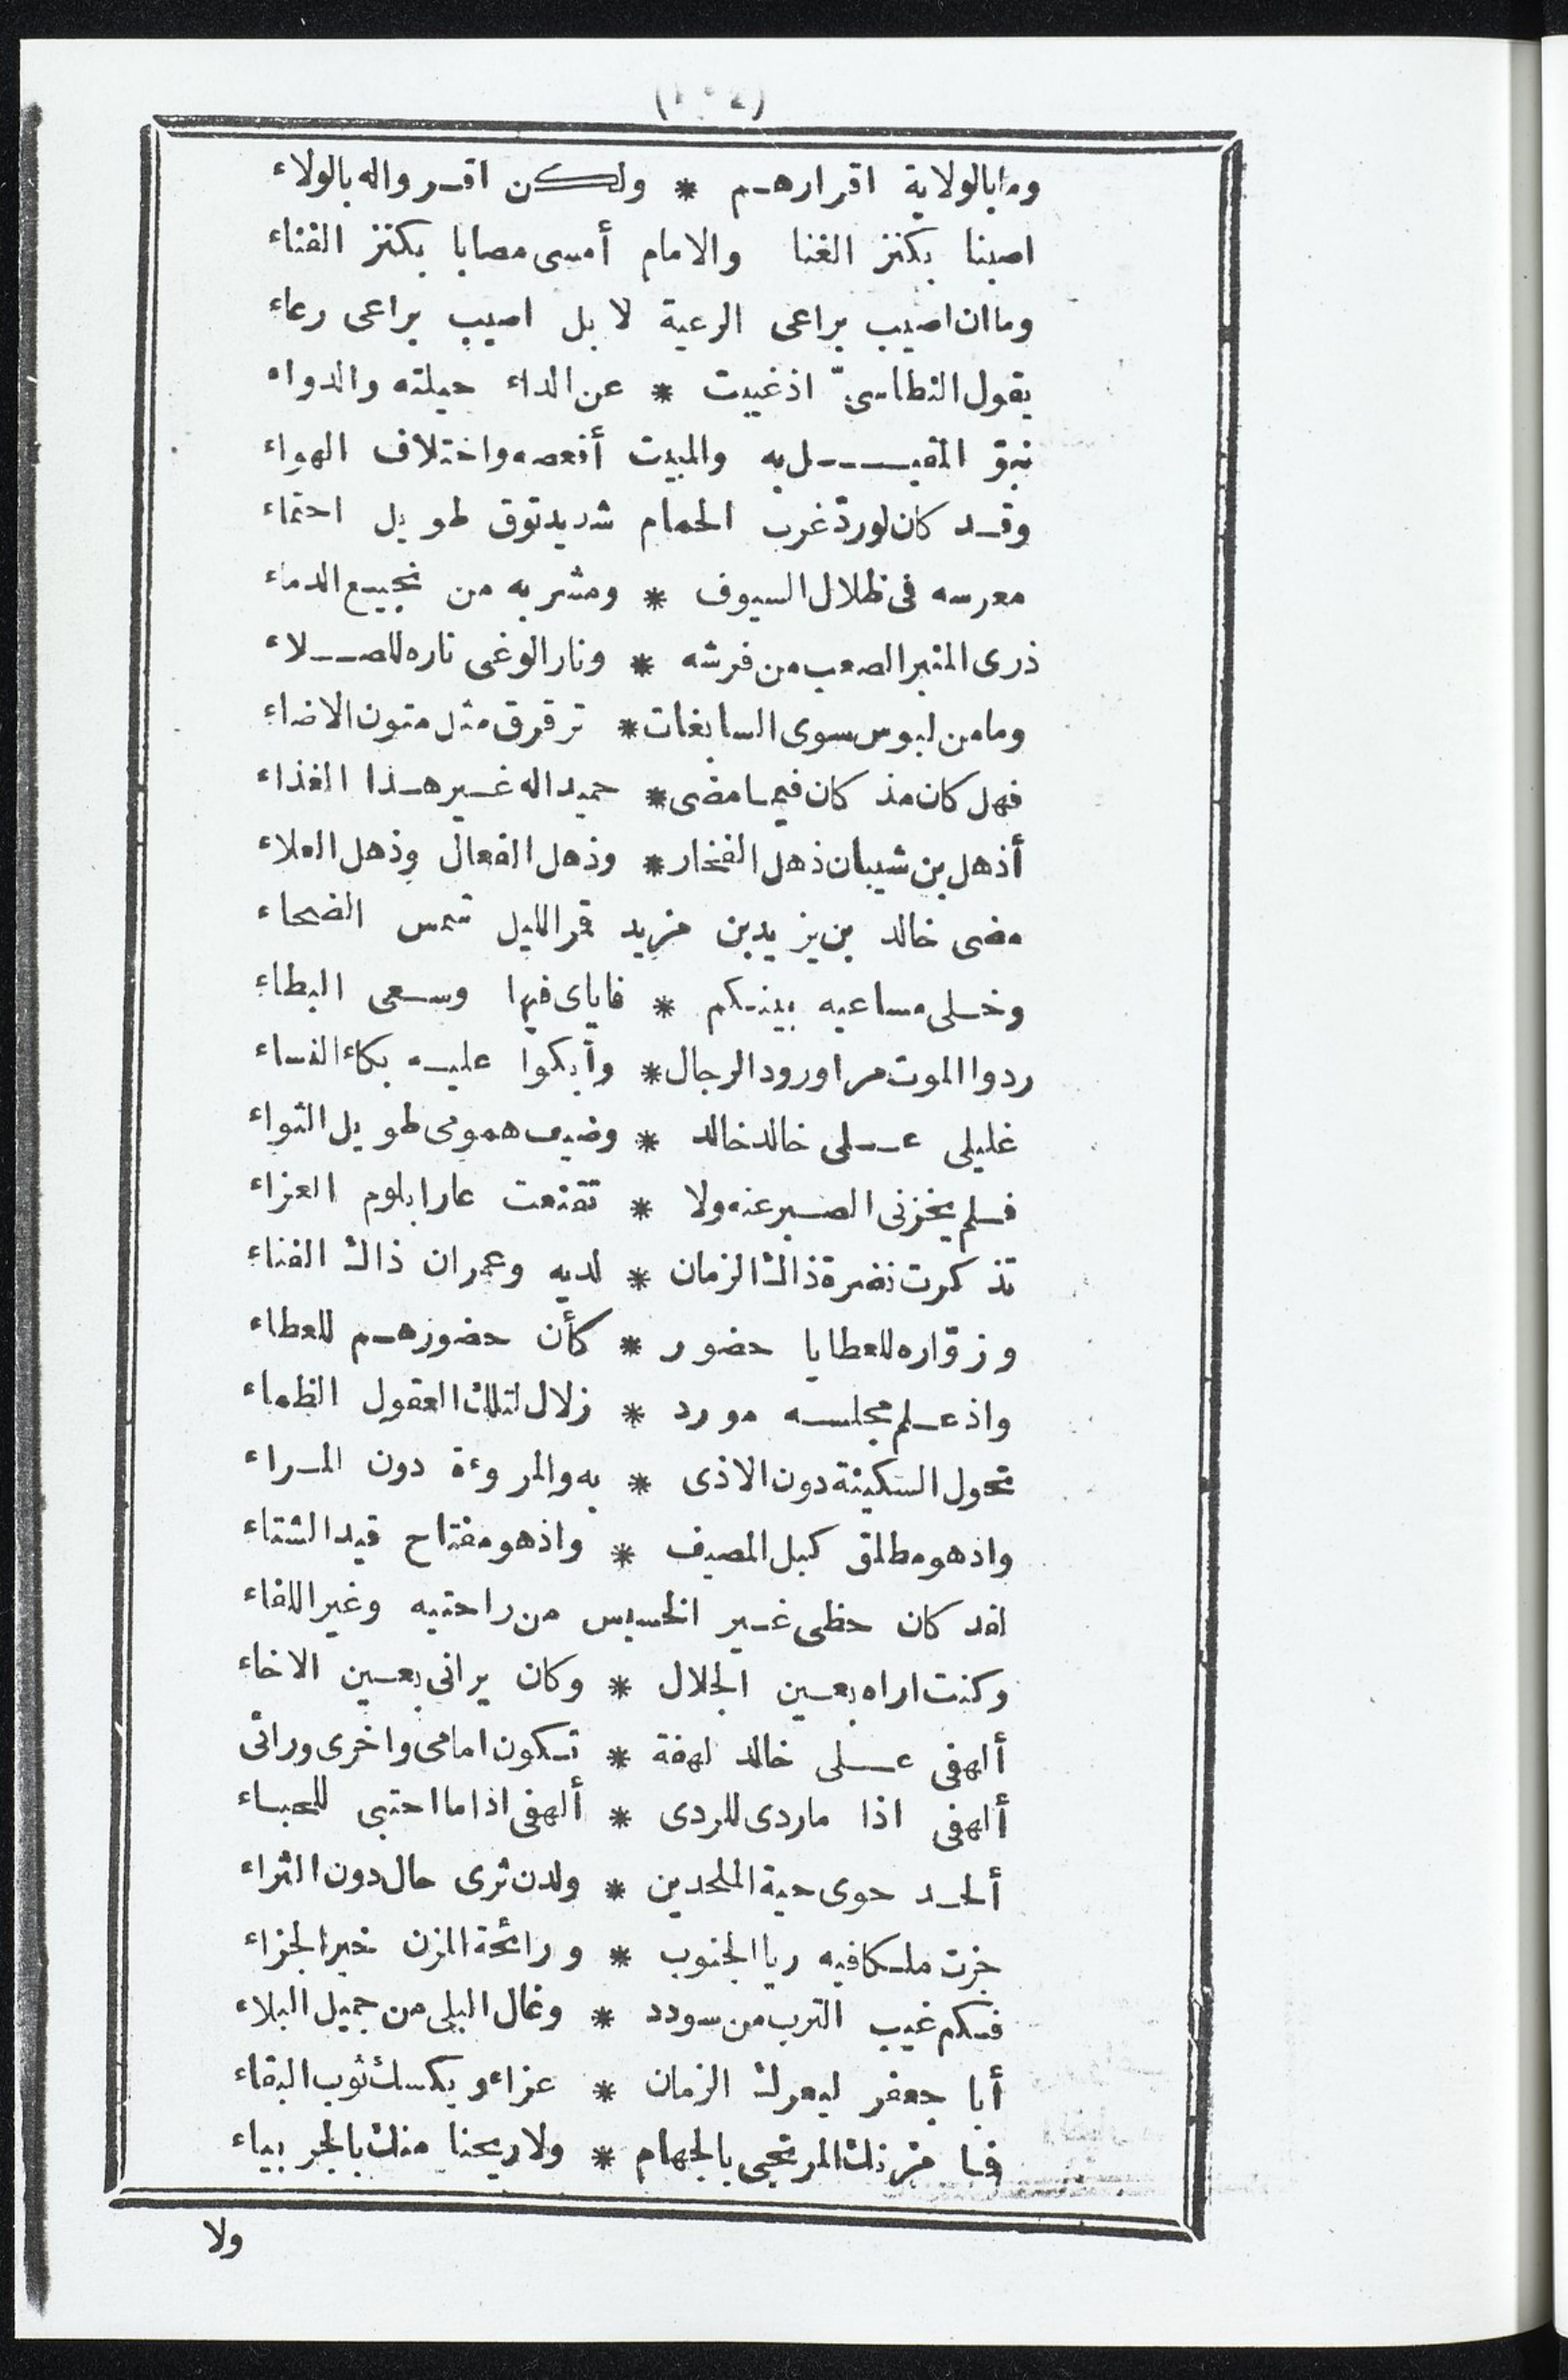 ومابالولاية اقرارهم * ولكن اقرواله بالولاء
اصبنا بكنز الغنا والامام أمسى مصابا بكنز الفناء
وماان اصيب براعى الرعية لا بل اصيب براعى رعاء
يقول النطاسىّ اذ غيبت * عن الداء حيلته والدواء
نبوّ المقيل به والمبيت أقعصه واختلاف الهواء
وقد كان لوردّ غرب الحمام شديد توق طويل احتماء
معرسه فى ظلال السيوف * ومشربه من نجيع الدماء
ذرى المنبر الصعب من فرشه * ونار الوغى ناره للصلاء
ومامن لبوس سوى السابغات * ترقرق مثل متون الاضاء
فهل كان مذ كان فيما مضى * حميداله غير هذا الغذاء
أذهل بن شيبان ذهل الفخار * وذهل الفعال وذهل العلاء
مضى خالد بن يزيد بن مزيد قمر الليل شمس الضحاء
وخلى مساعيه بينكم * فاياى فيها وسعى البطاء
ردوا الموت مرا ورود الرجال * وأبكوا عليه بكاء النساء
غليلى على خالد خالد * وضيف همومى طويل الثواء
فلم يخزنى الصبر عنه ولا * تقنعت عارا بلوم العزاء
تذكرت نضرة ذاك الزمان * لديه وعمران ذاك الفناء
وزوّاره للعطايا حضور * كأن حضورهم للعطاء
واذ علم مجلسه مورد * زلال لتلك العقول الظماء
تحول السكينة دون الاذى * به والمروءة دون المراء
واذ هو مطلق كبل المصيف * واذ هو مفتاح قيد الشتاء
لقد كان حظى غير الخسيس من راحتيه وغير اللفاء
وكنت اراه بعين الجلال * وكان يرانى بعين الاخاء
ألهفى على خالد لهفة * تكون امامى واخرى ورائى
ألهفى اذا ماردى للردى * ألهفى اذا ما احتبى للحباء
ألحد حوى حية الملحدين * ولدن ثرى حال دون الثراء
جزت ملكا فيه ريا الجنوب * ورائحة المزن خير الجزاء
فكم غيب الترب من سودد * وغال البلى من جميل البلاء
أبا جعفر ليعرك الزمان * عزاء ويكسك ثوب البقاء
فما مزنك المرتجى بالجهام * ولا ريحنا منك بالجربياء
ولا